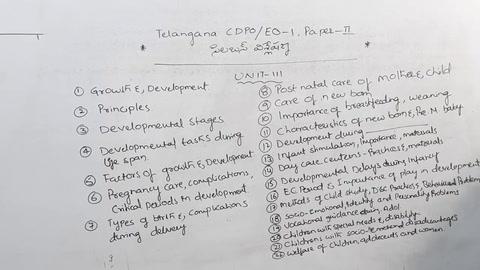 Telangana CDPO/EO-1, Paper-II
* సిలబస్ విశ్లేషణ *
UNIT-III
① Growth &, Development
② Principles
③ Developmental stages
④ Developmental tasks during
life span.
⑤ Factors of growth &, Development
⑥ Pregnancy care, complications,
Critical Periods in development.
⑦ Types of birth &, complications
during delivery
⑧ Post natal care of mother &, child
⑨ Care of new born
⑩ Importance of breastfeeding, weaning
⑪ Characteristics of new born &, Pre.M. baby
⑫ Development during
⑬ Infant stimulation, Importance, materials
⑭ Day care centers - Practices &, materials
⑮ Developmental Delays during infancy
⑯ EC Period & Importance of play in development
⑰ methods of child study, Disc Practices, Behavioural Problems
⑱ Socio-emotional, Identity and Personality Problems
⑲ Vocational guidance during Adol
⑳ Children with special needs &, disability
㉑ Children with socio-emotional disadvantages
㉒ welfare of children, adolescents and women.